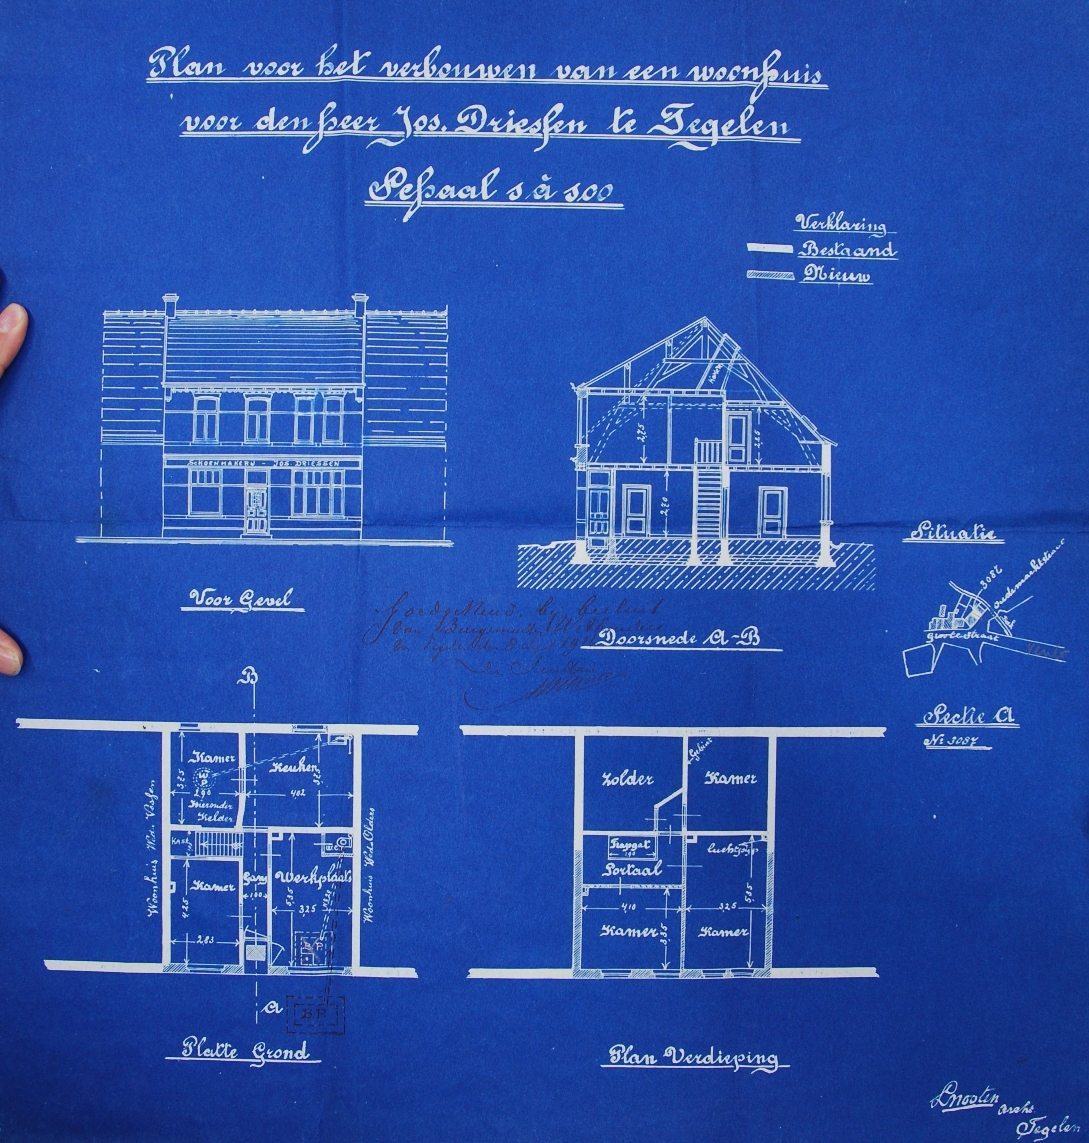 Plan voor het verbouwen van een woonhuis
voor den heer Jos. Driessen te Tegelen
Schaal 1 à 100
Verklaring
Bestaand
Nieuw
SCHOENMAKERIJ - JOS. DRIESSEN
Voor Gevel
2,75
2,70
Doorsnede A-B
Situatie
3087
oudemarktstraat
Groote straat
Sectie A
No 3087
Goedgekeurd bij besluit
van Burgemeester & Wethouders
B
Kamer
3,25
W
P
2,90
Hieronder
Kelder
Keuken
4,02
Kast
Woonhuis Wed. Vissen
Woonhuis Wed. Olders
Kamer
4,25
2,83
Gang
1,00
W.C.
Werkplaats
5,35
3,25
B.P.
A
B.P.
Platte Grond
Zolder
Kamer
Trapgat
Portaal
4,10
3,25
Kamer
3,35
Kamer
5,35
Plan Verdieping
Arch.
Tegelen